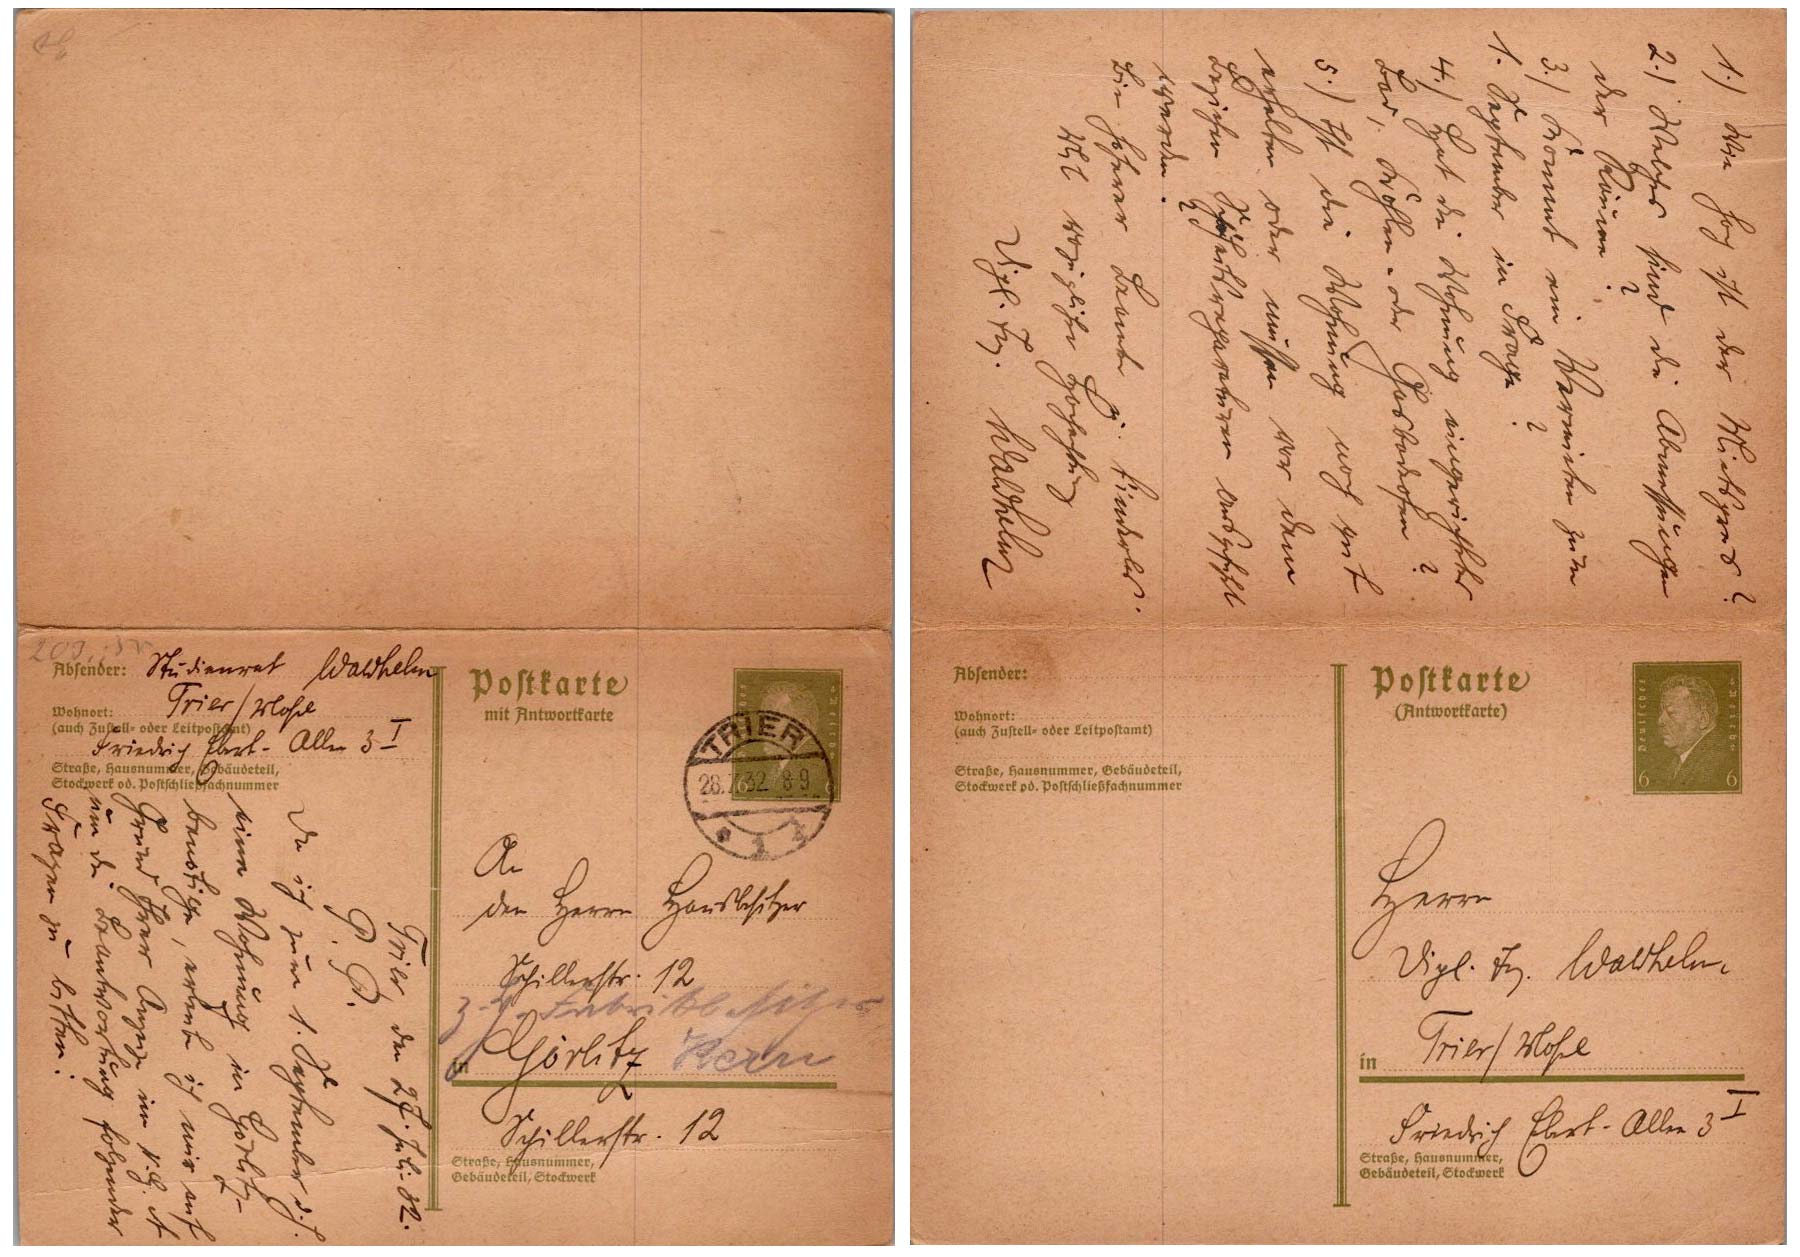 Absender: Studienrat Waldhelm
Trier/Mosel
Wohnort:
(auch Zustell- oder Leitpostamt)
Friedrich Ebert-Allee 3 I
Straße, Hausnummer, Gebäudeteil,
Stockwerk od. Postschließfachnummer
Postkarte
mit Antwortkarte
Deutsches Reich
TRIER
28.7.32 8-9
An
den Herrn Hausbesitzer
Schillerstr. 12
z. H. Fabrikbesitzer
in Görlitz
Schillerstr. 12
Straße, Hausnummer,
Gebäudeteil, Stockwerk
Trier den 27. Juli 32.
P. P.
Da ich zum 1. September d. J.
eine Wohnung in Görlitz
benötige, erlaube ich mir auf
Grund Ihrer Anzeige im
um die Beantwortung folgender
Fragen zu bitten:
1.) Wie hoch ist der Mietspreis?
2.) Welches sind die Abmessungen
der Räume?
3.) Kommt ein Vermieten zum
1. September in Frage?
4.) Hat die Wohnung eingerichtetes
Bad, Kohlen- oder Gasbadeofen?
5.) Ist die Wohnung noch gut
erhalten oder müssen vor dem
Beziehen Schönheitsreparaturen ausgeführt
werden?
Bin höherer Beamter u. kinderlos.
Mit vorzüglicher Hochachtung
Dipl. Ing. Waldhelm
Absender:
Wohnort:
(auch Zustell- oder Leitpostamt)
Straße, Hausnummer, Gebäudeteil,
Stockwerk od. Postschließfachnummer
Postkarte
(Antwortkarte)
Deutsches Reich
6 6
Herrn
Dipl. Ing. Waldhelm
in Trier/Mosel
Friedrich Ebert-Allee 3 I
Straße, Hausnummer,
Gebäudeteil, Stockwerk